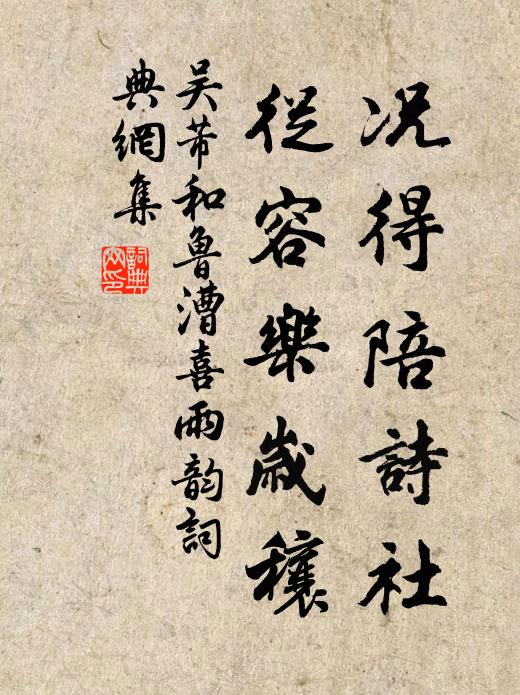 況得陪詩社
從容樂歲穰
吴芾和魯漕喜雨韵詞
典網集
詞典
网印